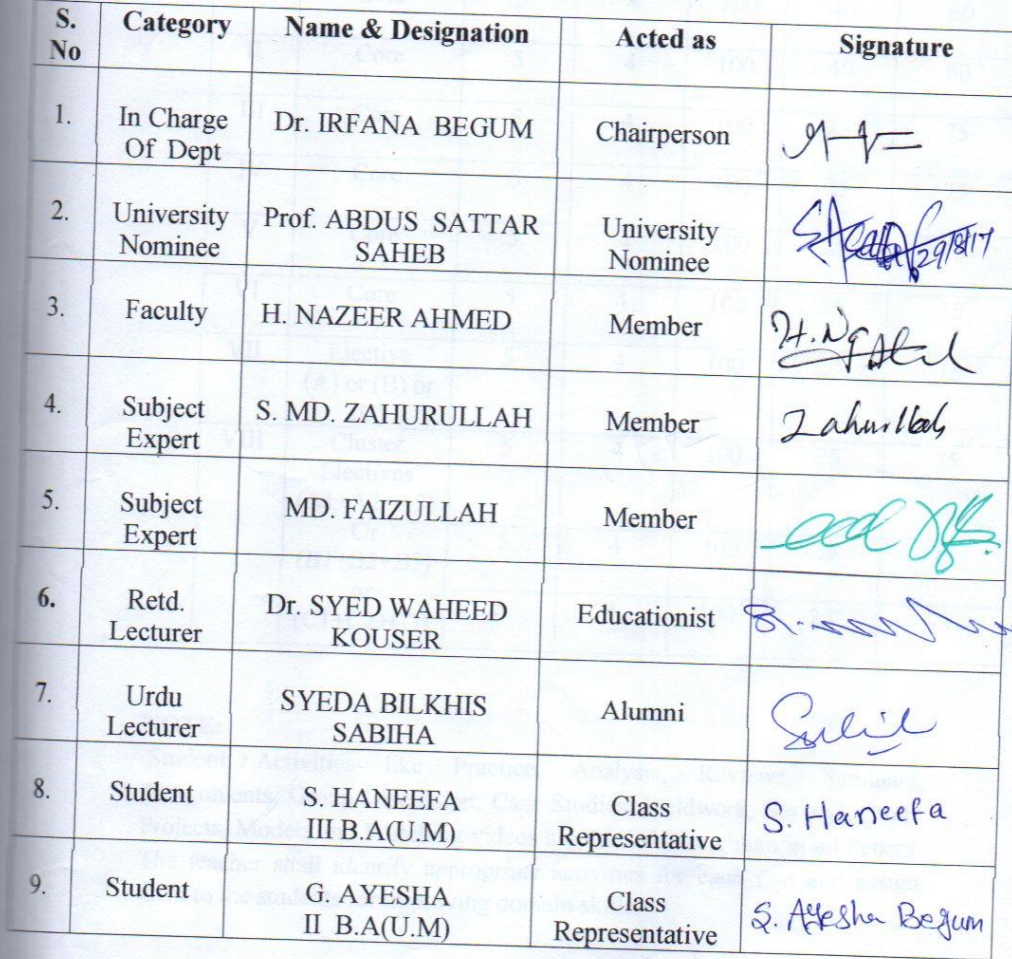 S. No Category Name & Designation Acted as Signature
1. In Charge Of Dept Dr. IRFANA BEGUM Chairperson
2. University Nominee Prof. ABDUS SATTAR SAHEB University Nominee 29/8/17
3. Faculty H. NAZEER AHMED Member
4. Subject Expert S. MD. ZAHURULLAH Member Zahurllah
5. Subject Expert MD. FAIZULLAH Member
6. Retd. Lecturer Dr. SYED WAHEED KOUSER Educationist
7. Urdu Lecturer SYEDA BILKHIS SABIHA Alumni
8. Student S. HANEEFA III B.A(U.M) Class Representative S. Haneefa
9. Student G. AYESHA II B.A(U.M) Class Representative S. Ayesha Begum